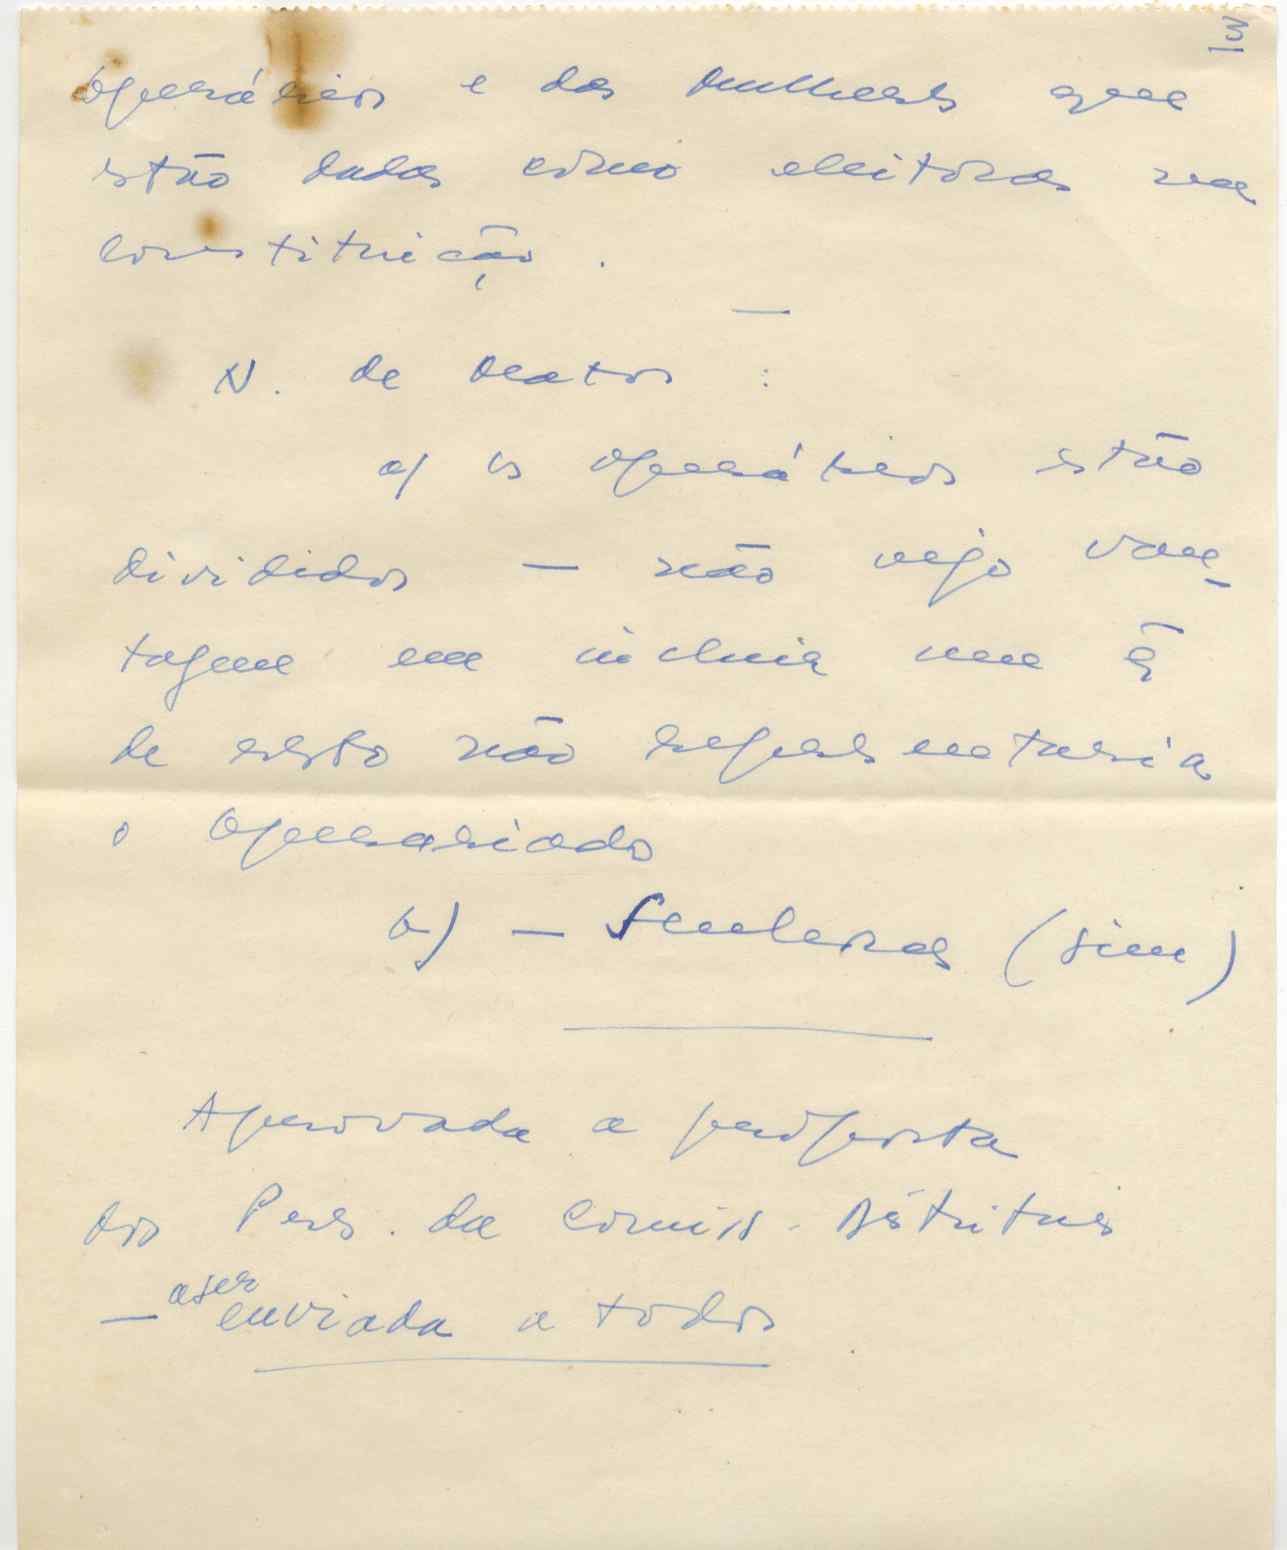 3
operários e das mulheres que
estão dadas como eleitoras na
Constituição.
N. de Matos :
a) os operários estão
divididos — não vejo van-
tagem em incluir um q̃
de resto não representaria
o operariado
b) — Senhoras (sim)
Aprovada a proposta
dos Pres. da Comiss. Distritais
— a ser enviada a todos